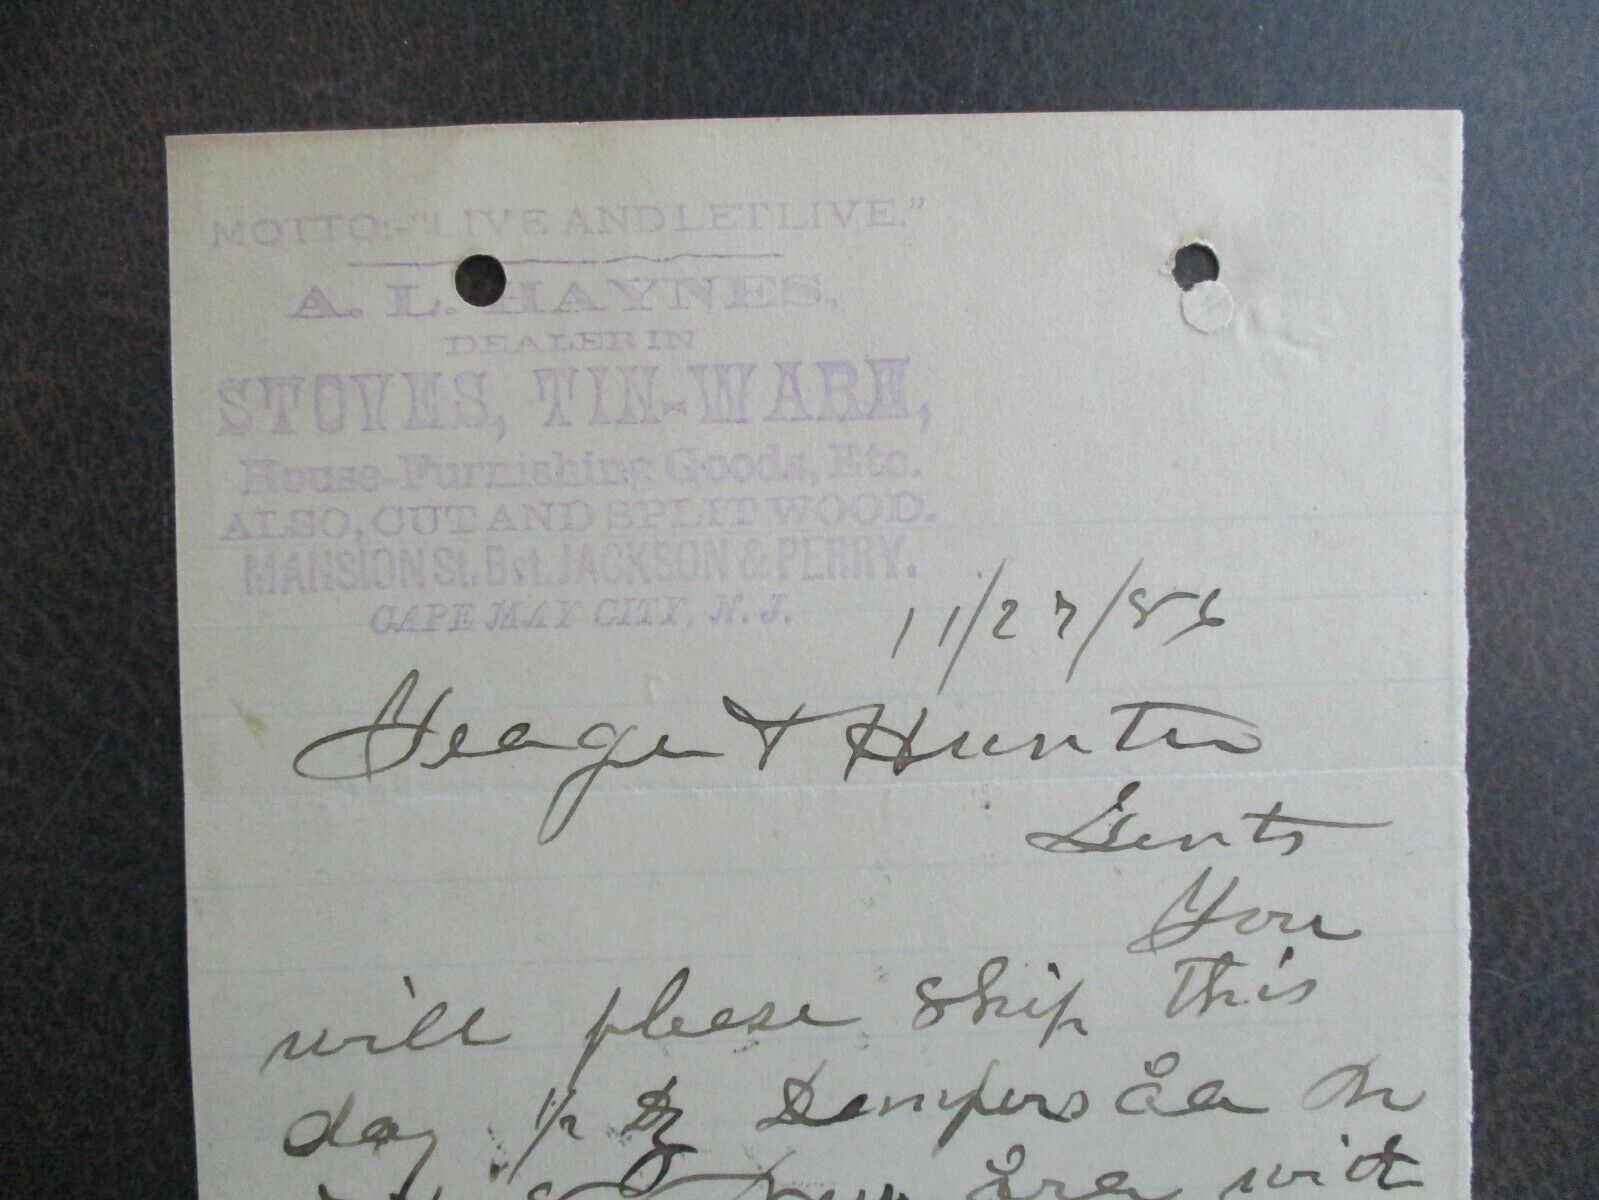 MOTTO:- "LIVE AND LET LIVE."
A. L. HAYNES,
DEALER IN
STOVES, TIN-WARE,
House-Furnishing Goods, Etc.
ALSO, CUT AND SPLIT WOOD.
MANSION St. Bet. JACKSON & PERRY.
CAPE MAY CITY, N. J.
11/27/86
& Hunter
Gents
You
will please ship this
day 1/2 Dz Dampers
with